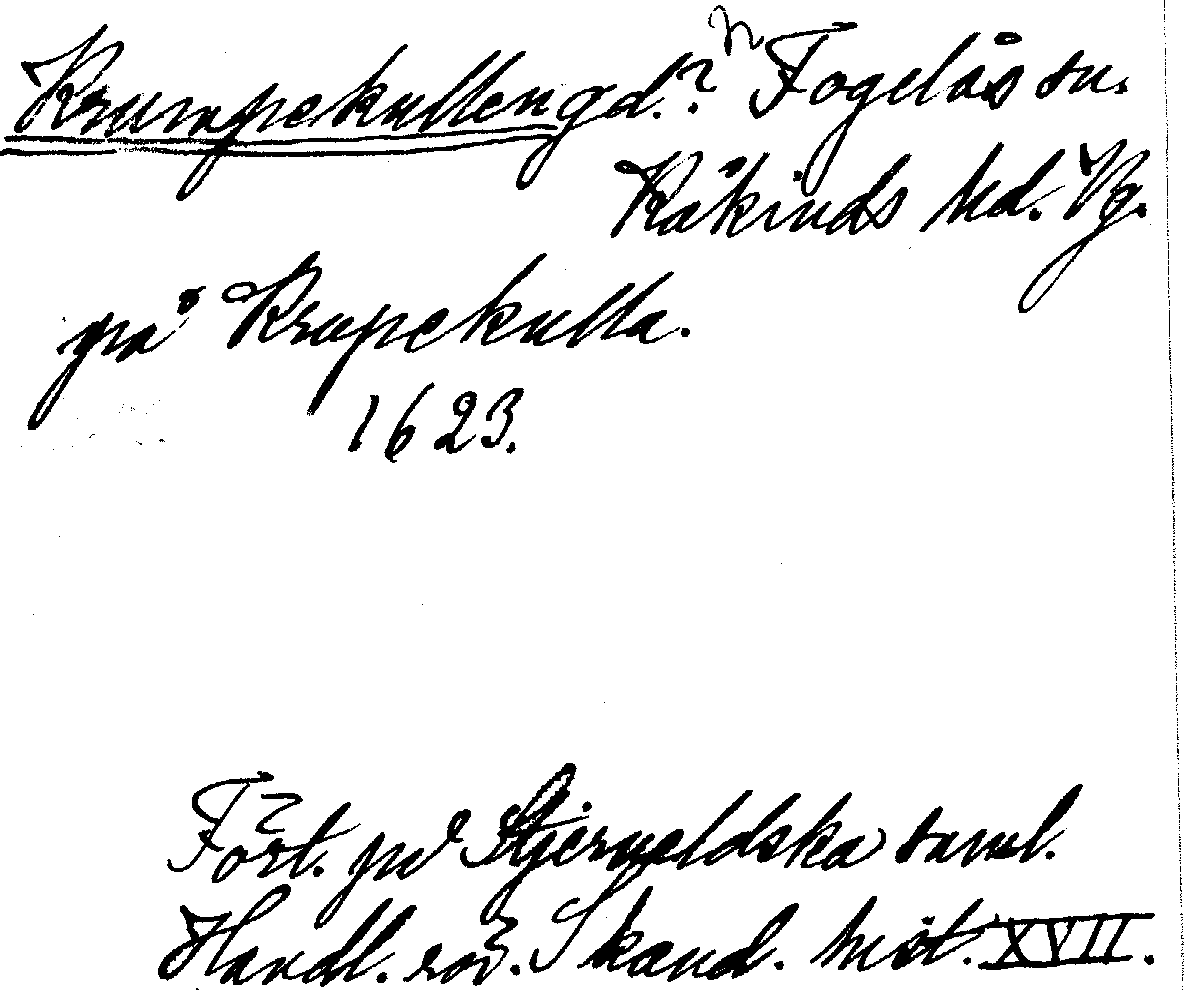 Krumpekullen gd.? N Fogelås sn.
Kåkinds hd. Vg.
på Krupekulla.
1623.
Fört. på Stjerneldska saml.
Handl. rör. Skand. hist. XVII.